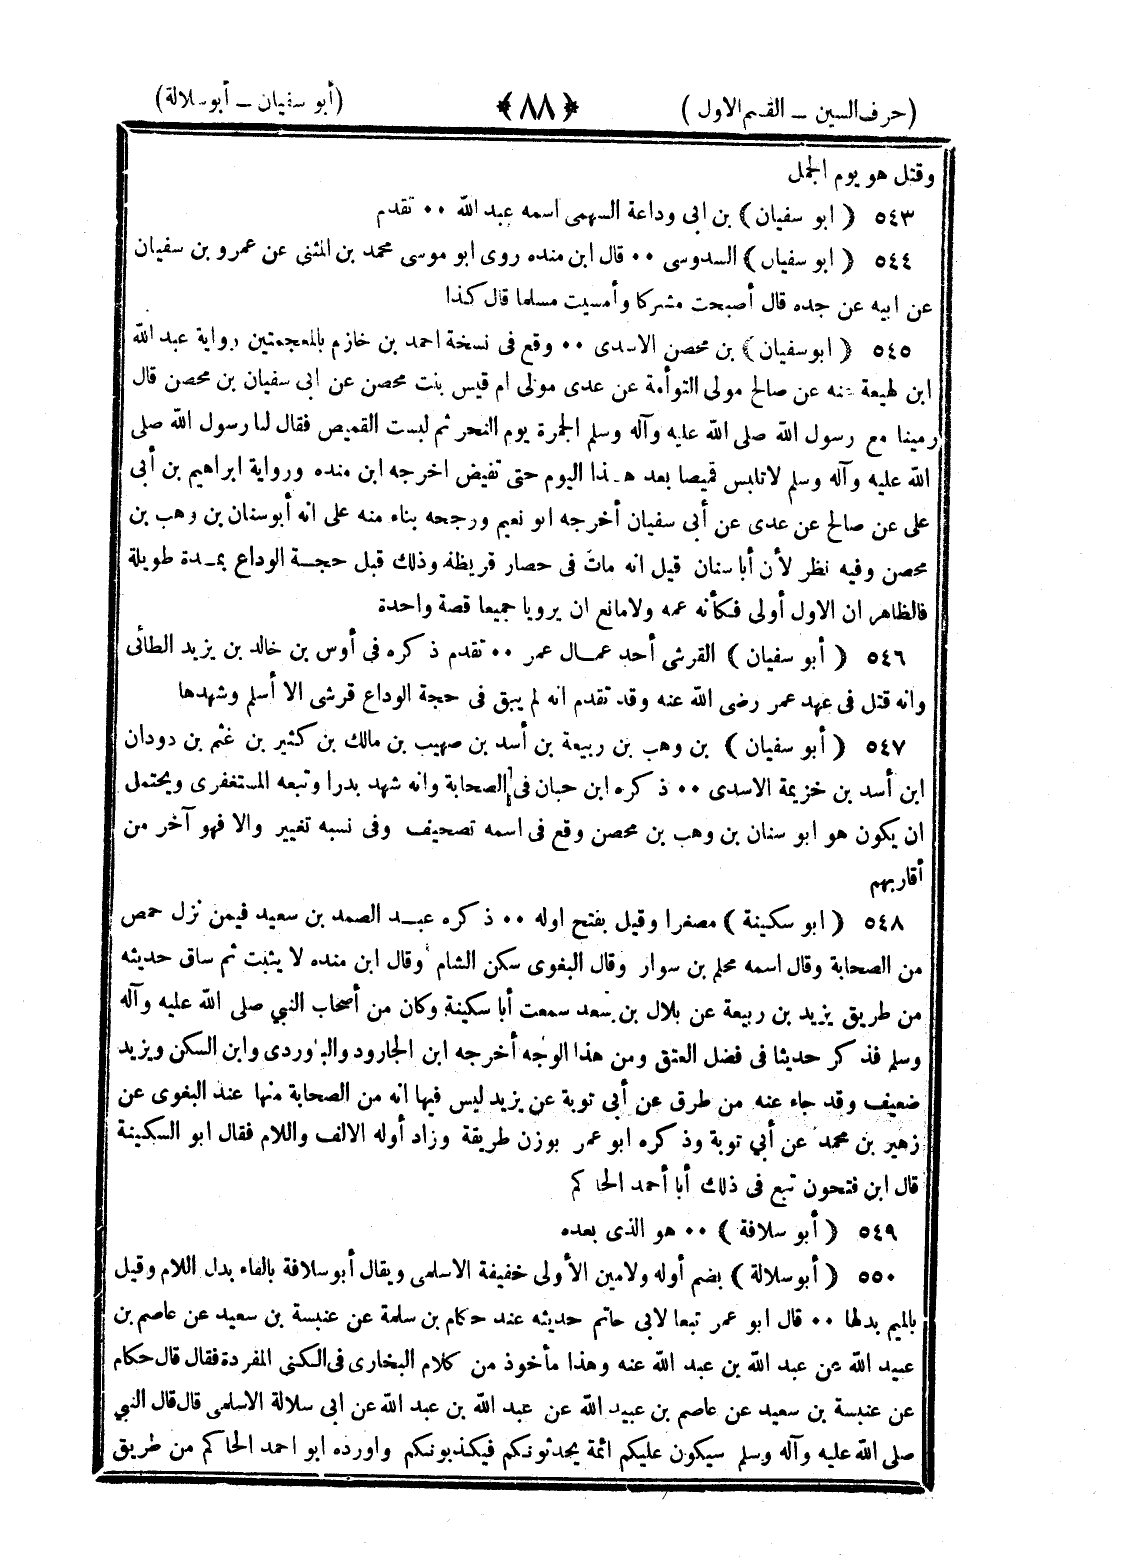 (حرف السين – القسم الاول) ﴿٨٨﴾ (أبو سفيان – أبو سلالة)
وقتل هو يوم الجمل
٥٤٣ (ابو سفيان) بن ابى وداعة السهمى اسمه عبد الله ٠٠ تقدم
٥٤٤ (ابو سفيان) السدوسى ٠٠ قال ابن منده روى ابو موسى محمد بن المثنى عن عمرو بن سفيان
عن ابيه عن جده قال أصبحت مشركا وأمسيت مسلما قال كذا
٥٤٥ (ابو سفيان) بن محصن الاسدى ٠٠ وقع فى نسخة احمد بن خازم بالمعجمتين رواية عبد الله
ابن لهيعة عنه عن صالح مولى التوأمة عن عدى مولى ام قيس بنت محصن عن ابى سفيان بن محصن قال
رمينا مع رسول الله صلى الله عليه وآله وسلم الجمرة يوم النحر ثم لبست القميص فقال لنا رسول الله صلى
الله عليه وآله وسلم لاتلبس قميصا بعد هـذا اليوم حتى تفيض اخرجه ابن منده ورواية ابراهيم بن أبى
على عن صالح عن عدى عن أبى سفيان أخرجه ابو نعيم ورجحه بناء منه على انه أبو سنان بن وهب بن
محصن وفيه نظر لأن أبا سنان قيل انه مات فى حصار قريظة وذلك قبل حجـة الوداع بمـدة طويلة
فالظاهر ان الاول أولى فكأنه عمه ولامانع ان يرويا جميعا قصة واحدة
٥٤٦ (أبو سفيان) القرشى أحد عمـال عمر ٠٠ تقدم ذكره فى أوس بن خالد بن يزيد الطائى
وانه قتل فى عهد عمر رضى الله عنه وقد تقدم انه لم يبق فى حجة الوداع قرشى الا أسلم وشهدها
٥٤٧ (أبو سفيان) بن وهب بن ربيعة بن أسد بن صهيب بن مالك بن كثير بن غنم بن دودان
ابن أسد بن خزيمة الاسدى ٠٠ ذكره ابن حبان فى الصحابة وانه شهد بدرا وتبعه المستغفرى ويحتمل
ان يكون هو ابو سنان بن وهب بن محصن وقع فى اسمه تصحيف وفى نسبه تغيير والا فهو آخر من
أقاربهم
٥٤٨ (ابو سكينة) مصغرا وقيل بفتح اوله ٠٠ ذكره عبـد الصمد بن سعيد فيمن نزل حمص
من الصحابة وقال اسمه محلم بن سوار وقال البغوى سكن الشام وقال ابن منده لا يثبت ثم ساق حديثه
من طريق يزيد بن ربيعة عن بلال بن سعد سمعت أبا سكينة وكان من أصحاب النبي صلى الله عليه وآله
وسلم فذكر حديثا فى فضل العتق ومن هذا الوجه أخرجه ابن الجارود والباوردى وابن السكن ويزيد
ضعيف وقد جاء عنه من طرق عن أبى توبة عن يزيد ليس فيها انه من الصحابة منها عند البغوى عن
زهير بن محمد عن أبي توبة وذكره ابو عمر بوزن طريقة وزاد أوله الالف واللام فقال ابو السكينة
قال ابن فتحون تبع فى ذلك أبا أحمد الحاكم
٥٤٩ (أبو سلافة) ٠٠ هو الذى بعده
٥٥٠ (أبو سلالة) بضم أوله ولامين الأولى خفيفة الاسلمى ويقال أبو سلافة بالفاء بدل اللام وقيل
بالميم بدلها ٠٠ قال ابو عمر تبعا لابى حاتم حديثه عند حكام بن سلمة عن عنبسة بن سعيد عن عاصم بن
عبيد الله عن عبد الله بن عبد الله عنه وهذا مأخوذ من كلام البخارى فى الكنى المفردة فقال قال حكام
عن عنبسة بن سعيد عن عاصم بن عبيد الله عن عبد الله بن عبد الله عن ابى سلالة الاسلمى قال قال النبي
صلى الله عليه وآله وسلم سيكون عليكم ائمة يحدثونكم فيكذبونكم واورده ابو احمد الحاكم من طريق